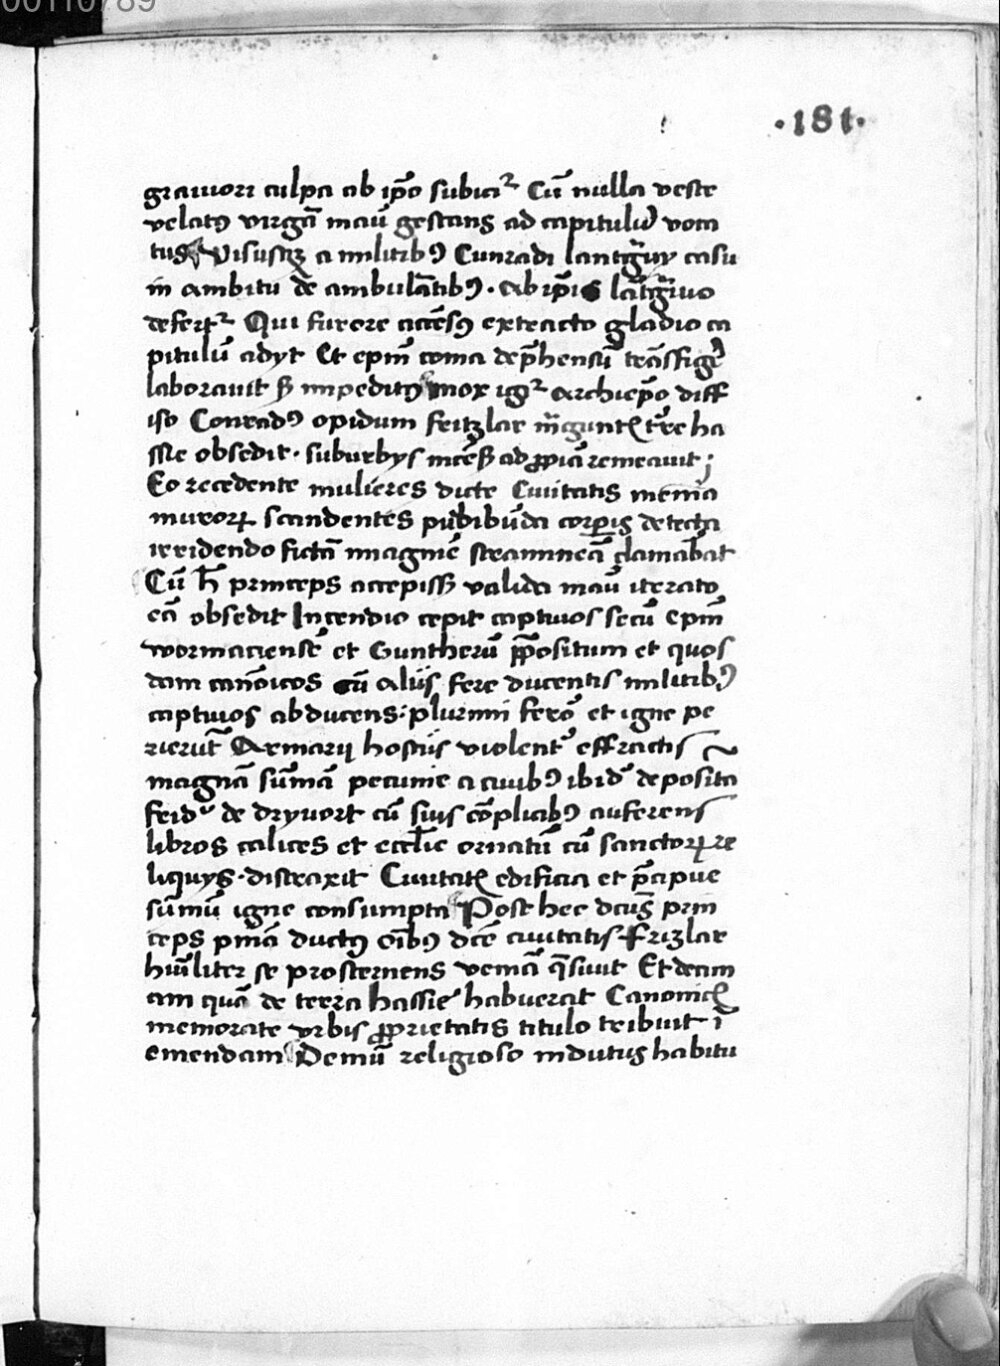 00110789
·181·
grauiori culpa ab ip̄o subicit᷑ Cū nulla veste
velatꝰ virgā manū gestans ad capitulū voca
tus Visusqꝫ a militibꝰ Cunradi lantḡuy casu
in ambitu de ambulātibꝰ · Ab ip̄is lātḡuio
defert᷑ Qui furore accēsꝰ extracto gladio ca
pitulū adyt Et ep̄m coma dep̄hensū trāsfige᷑
laborauit sꝫ impeditꝰ mox igᷣ Archiep̄o diff
iso Conradꝰ opidum fritzlar m̄gunt̄ t᷑re ha
ssie obsedit · suburbys incēs̄ ad ꝓp̄ia remeauit ;
Eo recedente mulieres dicte Ciuitatis menia
muroꝝ scandentes pudibūda corꝑis detecta
irridendo fictā imaginē stramineā clamabāt
Cū h̄ princeps accepiss̄ valida manū iterato
eā obsedit Incendio cepit captiuos secū ep̄m
wormaciensē et Guntherū p̄positum et quos
dam canōicos cū aliis fere ducentis militibꝰ
captiuos abducens · plurimi ferrō et igne pe
rierūt Armarij hostiis violent᷑ effractis
magnā sūmā pecunie a ciuibꝰ ibid᷑ deposita
frid᷑ de dryuort cū suis cōplicibꝰ auferens
libros calices et eccl̄ie ornatū cū sanctoꝝ re
liquys · distraxit Ciuitat̄ edificia et p̄cipue
sūmū igne consumpta Post hec dcūs prin
ceps pn̄ia ductꝰ oībꝰ dc̄e ciuitatis Frizlar
hūiliter se prosternens veniā q̄siuit Et decim
am quā de terra hassie habuerat Canonic̄
memorate vrbis ꝓprietatis titulo tribuit ī
emendam Demū religioso indutus habitu